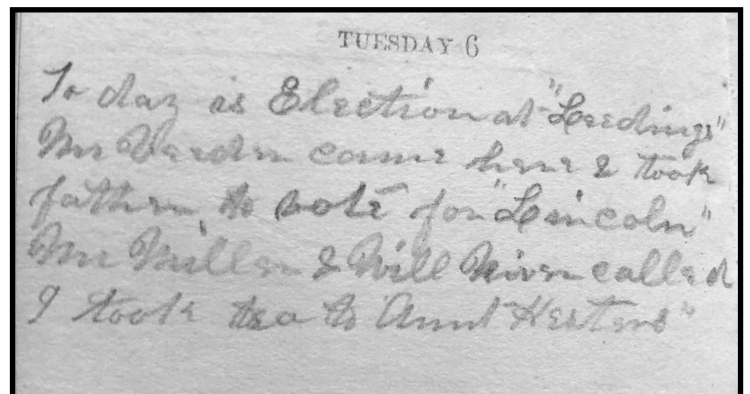 TUESDAY 6
To day is Election at "Leedings"
Mr Varden came here & took
father to vote for "Lincoln"
Mr Miller & Will Niven called
I took tea to Aunt Hesters"